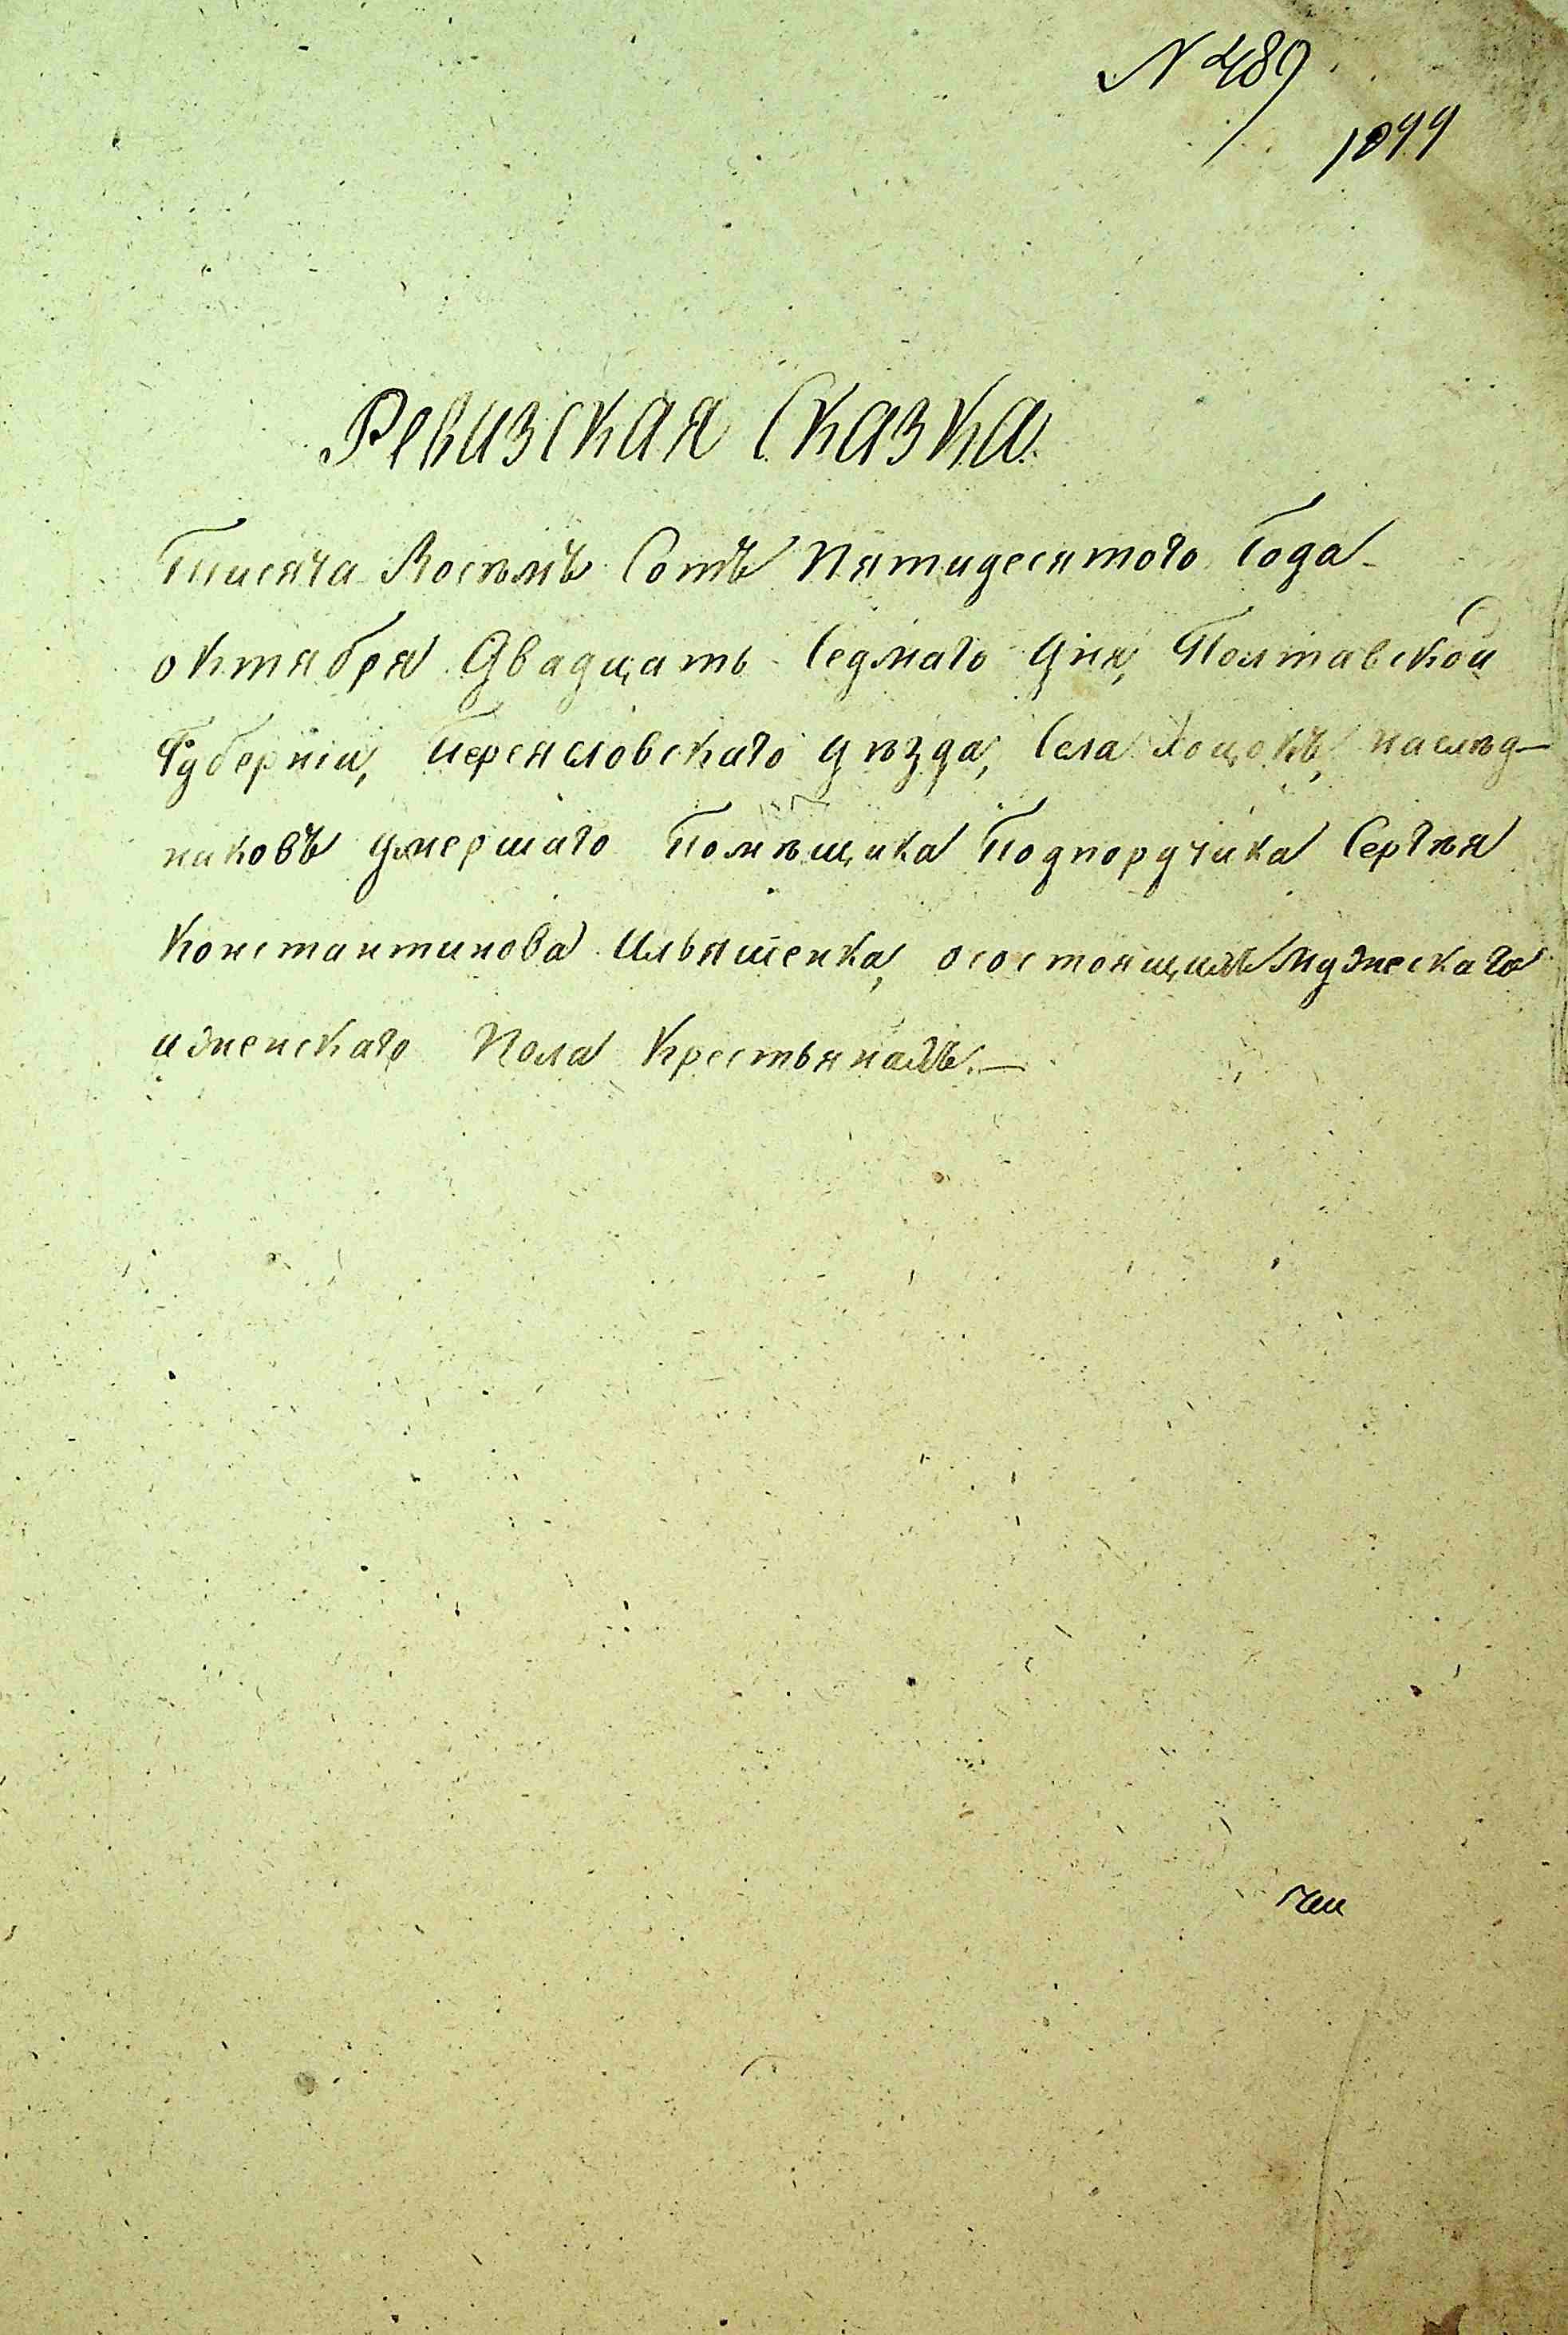 N 489
1099
Ревизская Сказка
Тысяча Восемь Сотъ Пятидесятого Года
октября Двадцать Седмаго Дня, Полтавской
Губерніи, Переясловскаго уѣзда, Села Хоцокъ, наслѣд-
никовъ умершаго Помѣщика Подпоручика Сергѣя
Константинова Ильяшенка, осостоящихъ Мужескаго
иженскаго Пола Крестьянахъ.—